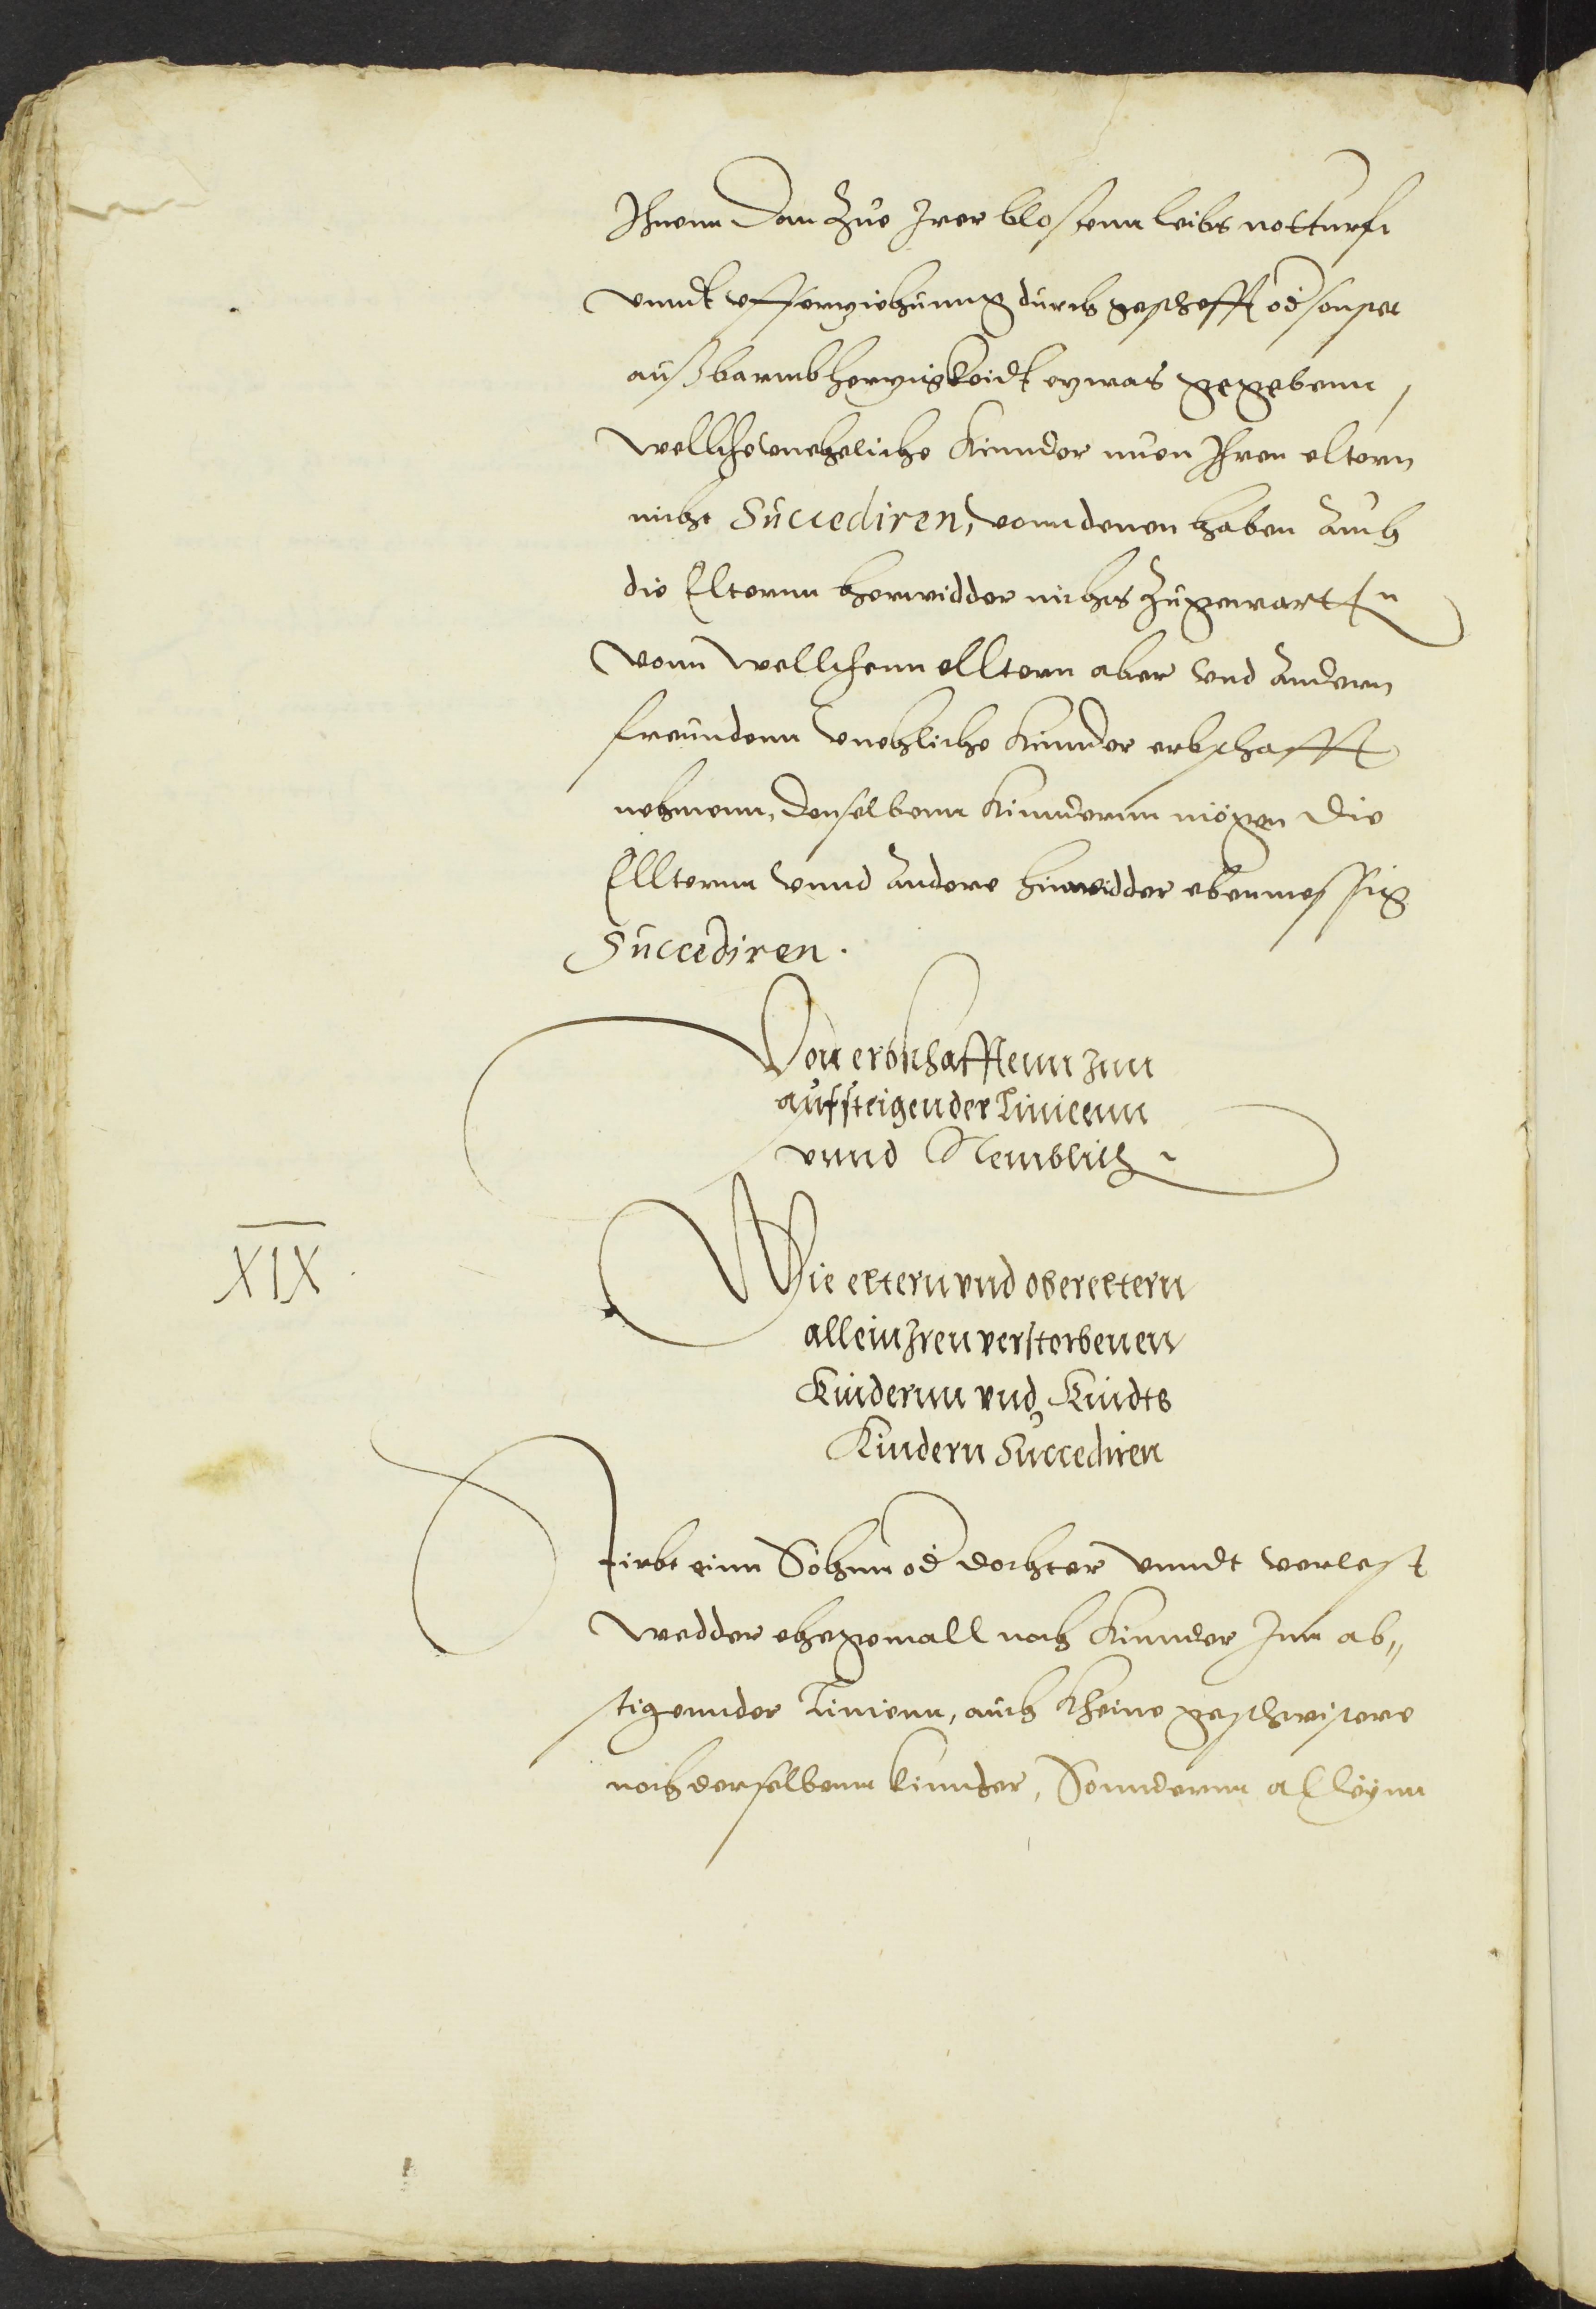 Ihnenn dan Zue Irer blossenn leibs notturfft
vnndt vfferziehunng durch gescheffte od sonsten
auß barmbhertzigkeidt etzwas gegebenn,
wellche vneheliche Kinnder nuen Ihren eltern
nicht Succediren, vonn denen haben auch
die Elternn herwidder nichts zugewartten
vonn wellchenn elltern aber vnd andern
freundenn vnehliche Kinnder erbschafft
nehmenn, denselbenn Kinndernn mögen die
Ellternn vnnd andere hinwidder ebenmessig
Succediren.
Von erbschafftenn Inn
aufsteigender Liniernn
vnnd Nemblich
XIX
Wie eltern vnd obereltern
allein Iren verstorbenen
Kindernn vnd Kindts
Kindern Succediren
Stirbt einn Sohnn od dochter vnndt verlest
wedder ehegemall noch Kinnder Inn ab„
stigennder Linienn, auch Kheine geschwistere
noch derselbenn kinnder, Sonndernn alleynn